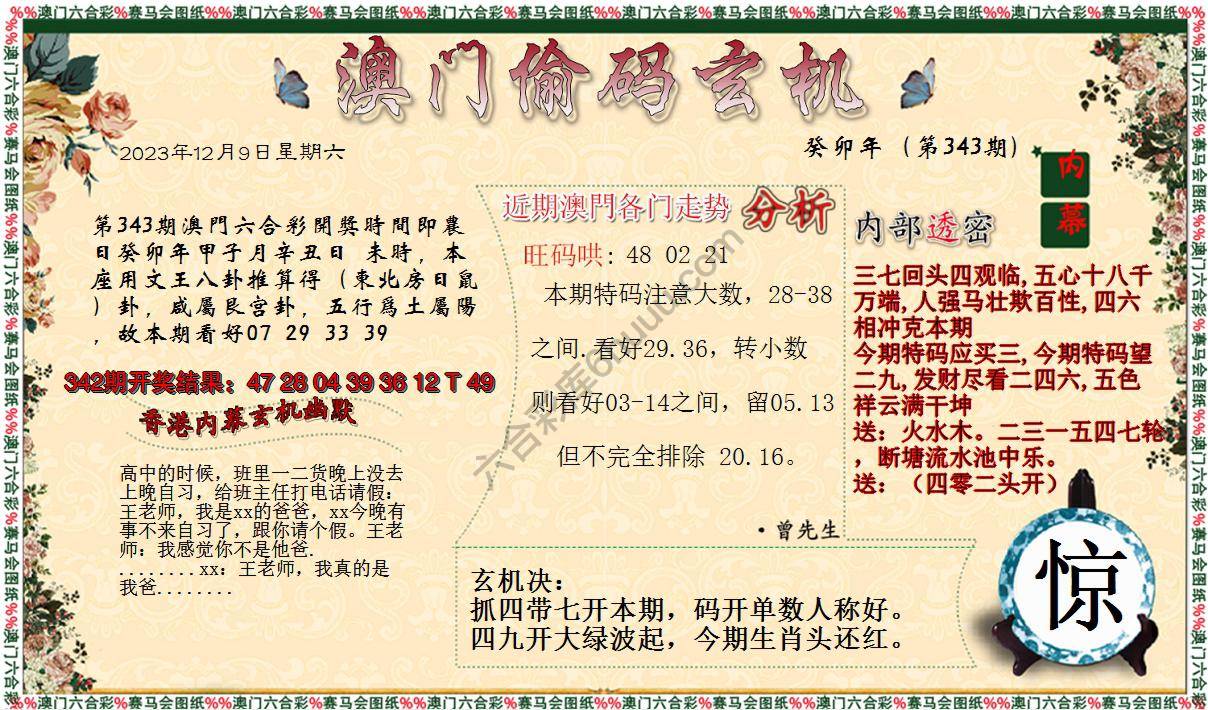 %%澳门六合彩%赛马会图纸%%澳门六合彩%赛马会图纸%%澳门六合彩%赛马会图纸%%澳门六合彩%赛马会图纸%%澳门六合彩%赛马会图纸%%澳门六合彩%赛马会图纸
澳门偷码玄机
2023年12月9日星期六
癸卯年（第343期）
内幕
第343期澳門六合彩開獎時間即農
日癸卯年甲子月辛丑日 未時，本
座用文王八卦推算得（東北房日鼠
）卦，咸屬艮宫卦，五行爲土屬陽
，故本期看好07 29 33 39
342期开奖结果：47 28 04 39 36 12 T 49
香港内幕玄机幽默
高中的时候，班里一二货晚上没去
上晚自习，给班主任打电话请假：
王老师，我是xx的爸爸，xx今晚有
事不来自习了，跟你请个假。王老
师：我感觉你不是他爸.
........xx：王老师，我真的是
我爸........
近期澳門各门走势 分析
旺码哄：48 02 21
本期特码注意大数，28-38
之间.看好29.36，转小数
则看好03-14之间，留05.13
但不完全排除 20.16。
·曾先生
内部透密
三七回头四观临,五心十八千
万端,人强马壮欺百性,四六
相冲克本期
今期特码应买三,今期特码望
二九,发财尽看二四六,五色
祥云满干坤
送：火水木。二三一五四七轮
，断塘流水池中乐。
送：（四零二头开）
玄机决：
抓四带七开本期，码开单数人称好。
四九开大绿波起，今期生肖头还红。
惊
%%澳门六合彩%赛马会图纸%%澳门六合彩%赛马会图纸%%澳门六合彩%赛马会图纸%%澳门六合彩%赛马会图纸%%澳门六合彩%赛马会图纸%%澳门六合彩%赛马会图纸